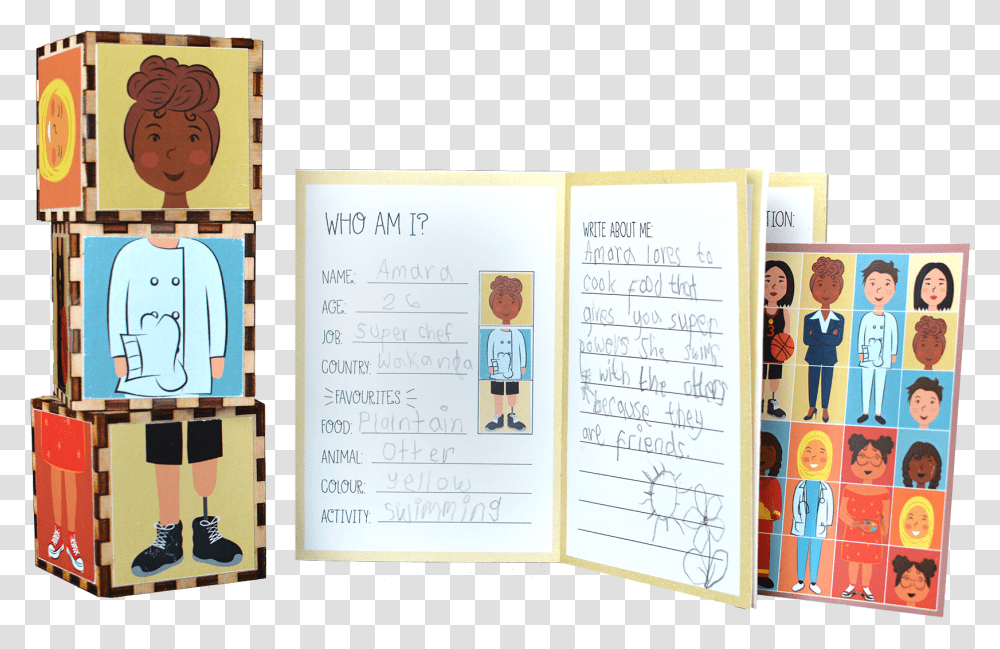 WHO AM I?
NAME: Amara
AGE: 26
JOB: Super chef
COUNTRY: Wakanda
FAVOURITES
FOOD: Plaintain
ANIMAL: Otter
COLOUR: yellow
ACTIVITY: swimming
WRITE ABOUT ME:
Amara loves to
cook food that
gives you super
powers She swims
with the otters
because they
are friends.
TION: